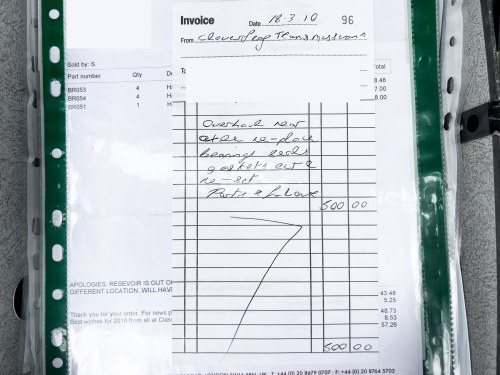 Invoice Date 18.3.10 96
From Cloverleaf Transmissions
To
Sold by: S
Part number Qty De Total
BR053 4 Ha 8.48
BR054 4 Ha 7.00
BR051 1 Ha 8.00
Overhaul rear
axle re-place
bearings seals
gaskets ect &
re-set
Parts & Labour
500 00
APOLOGIES. RESEVOIR IS OUT O
DIFFERENT LOCATION. WILL HAV
43.48
5.25
Thank you for your order. For news p
48.73
Best wishes for 2010 from all at Clas
8.53
57.26
500 00
LONDON SW14 8RN, UK T: +44 (0) 20 8679 0707 F: +44 (0) 20 8764 5703